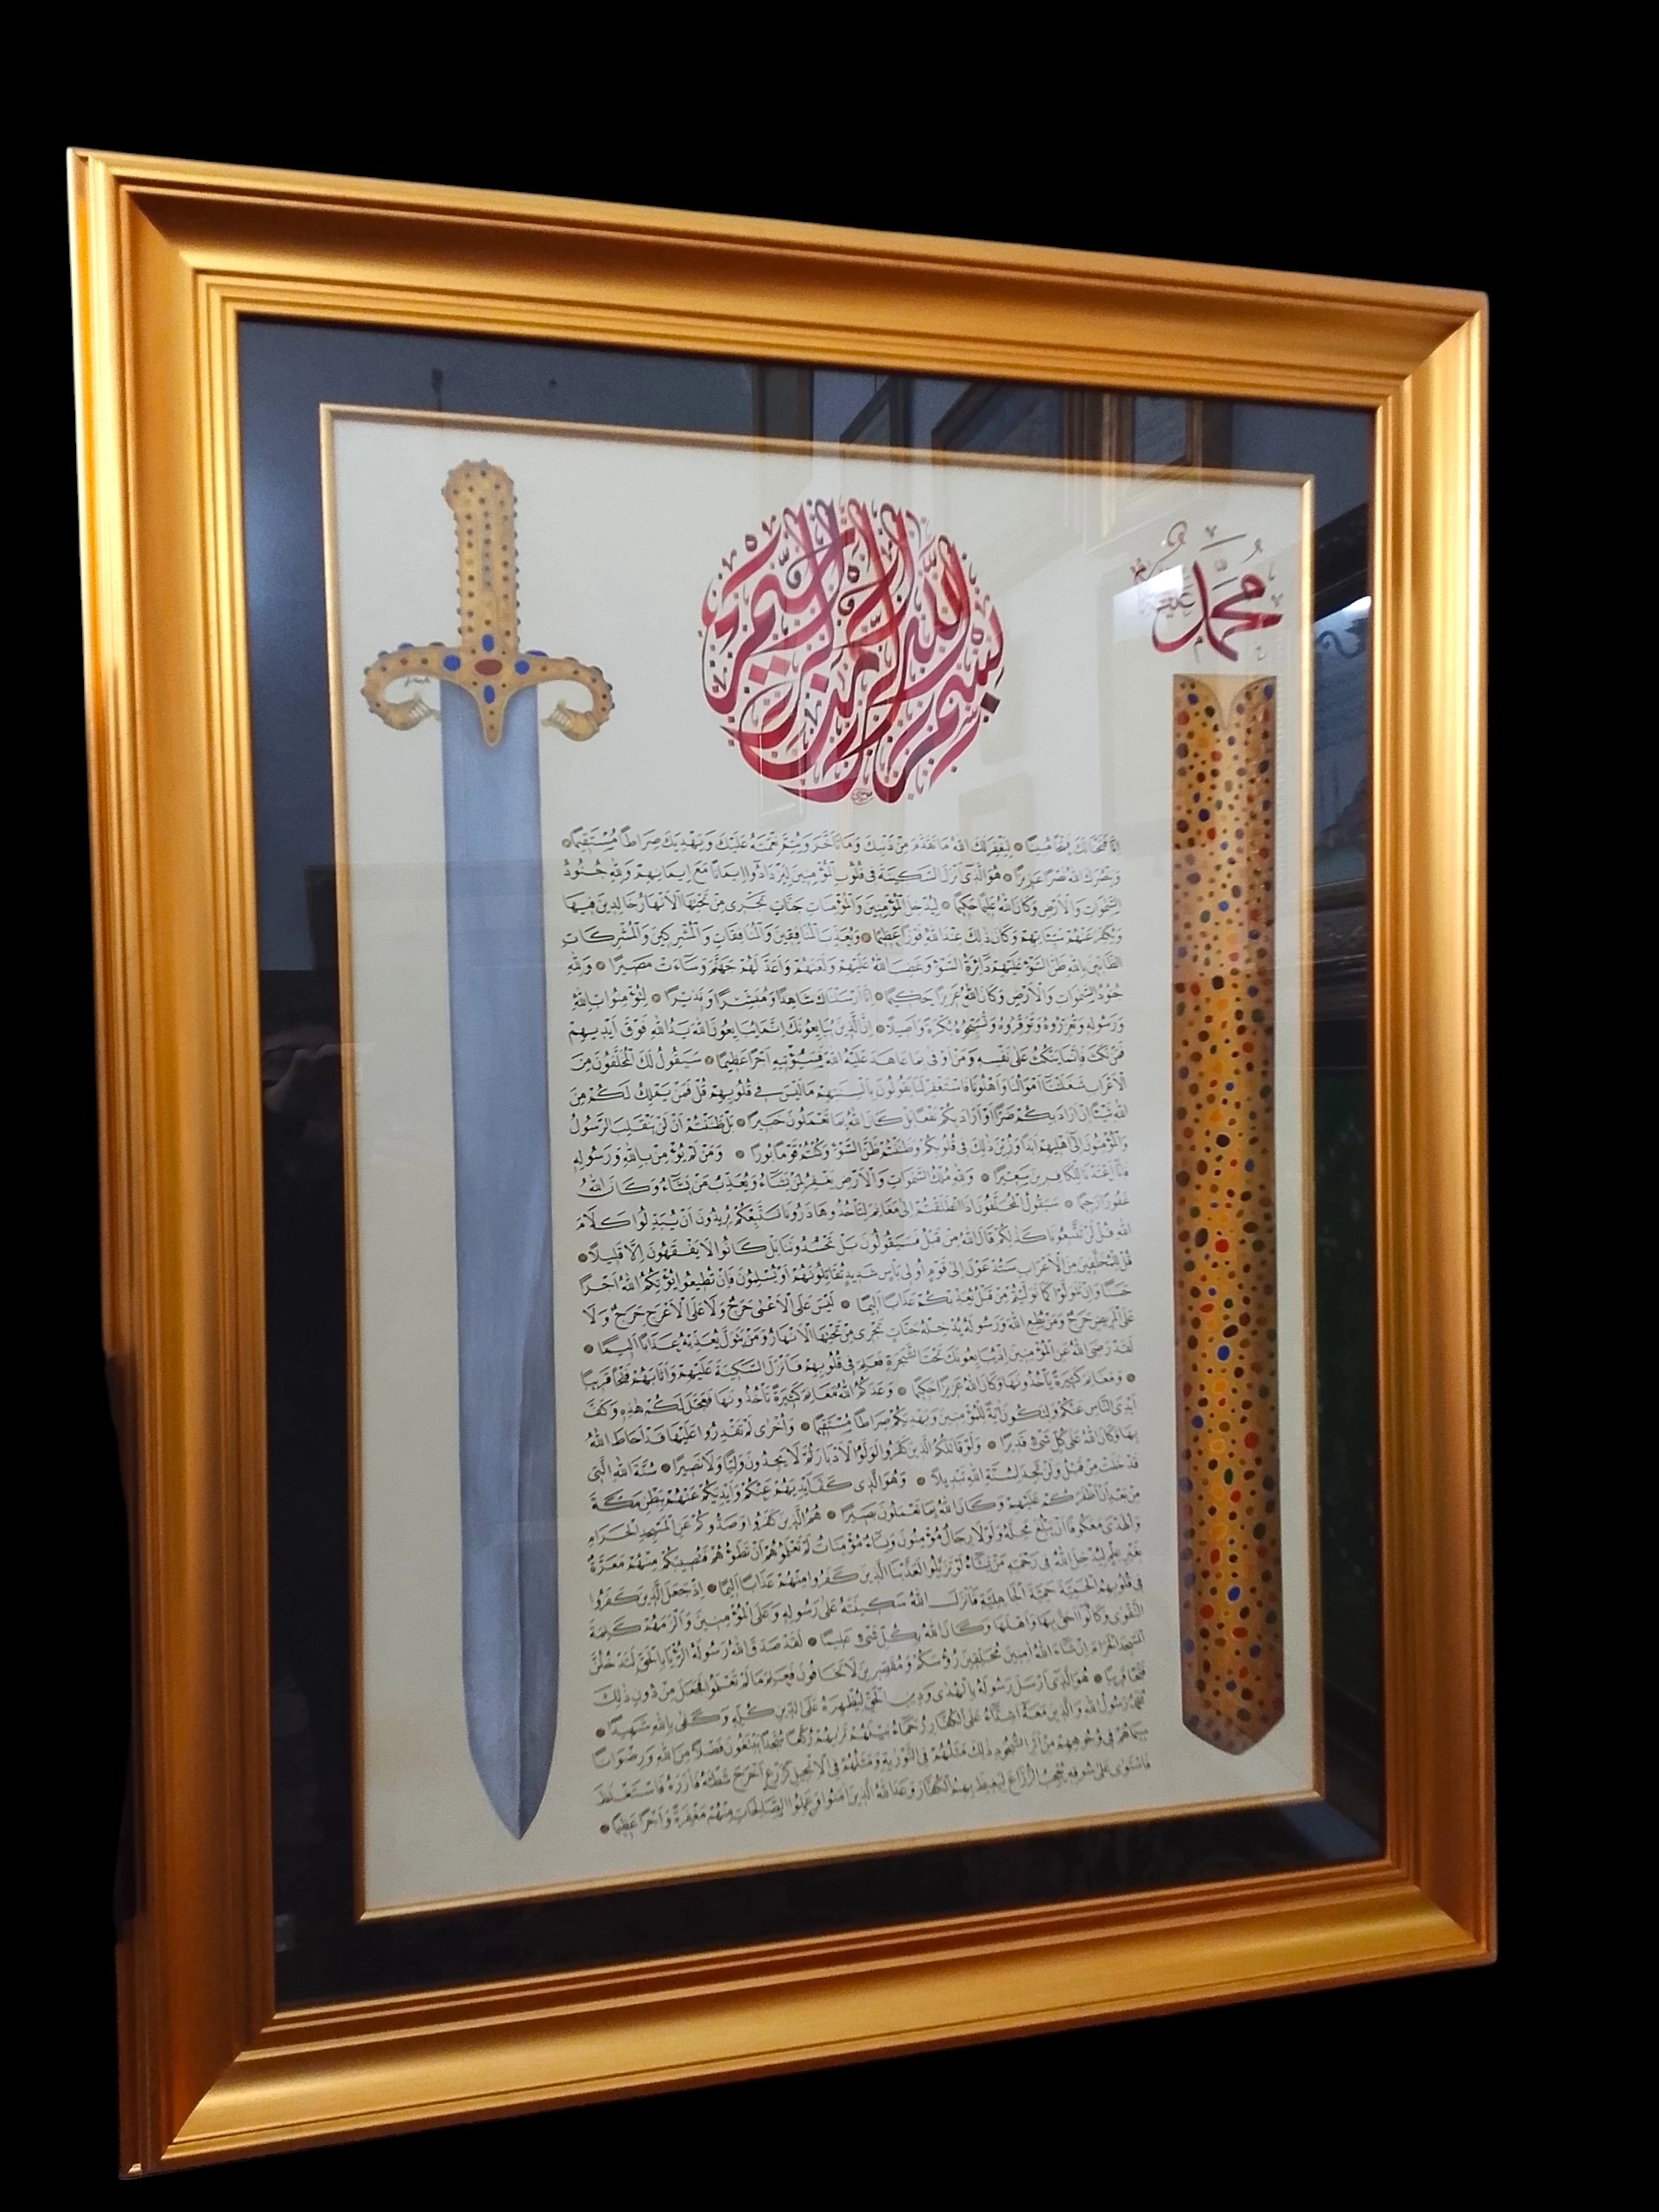 بسم الله الرحمن الرحيم
محمد
انا فتحنا لك فتحا مبينا ● ليغفر لك الله ما تقدم من ذنبك وما تأخر ويتم نعمته عليك ويهديك صراطا مستقيما ●
وينصرك الله نصرا عزيزا ● هو الذى انزل السكينة فى قلوب المؤمنين ليزدادوا ايمانا مع ايمانهم ولله جنود
السموات والارض وكان الله عليما حكيما ● ليدخل المؤمنين والمؤمنات جنات تجرى من تحتها الانهار خالدين فيها
ويكفر عنهم سيئاتهم وكان ذلك عند الله فوزا عظيما ● ويعذب المنافقين والمنافقات والمشركين والمشركات
الظانين بالله ظن السوء عليهم دائرة السوء وغضب الله عليهم ولعنهم واعد لهم جهنم وساءت مصيرا ● ولله
جنود السموات والارض وكان الله عزيزا حكيما ● انا ارسلناك شاهدا ومبشرا ونذيرا ● لتؤمنوا بالله
ورسوله وتعزروه وتوقروه وتسبحوه بكرة واصيلا ● ان الذين يبايعونك انما يبايعون الله يد الله فوق ايديهم
فمن نكث فانما ينكث على نفسه ومن اوفى بما عاهد عليه الله فسيؤتيه اجرا عظيما ● سيقول لك المخلفون من
الاعراب شغلتنا اموالنا واهلونا فاستغفر لنا يقولون بالسنتهم ما ليس فى قلوبهم قل فمن يملك لكم من
الله شيئا ان اراد بكم ضرا او اراد بكم نفعا بل كان الله بما تعملون خبيرا ● بل ظننتم ان لن ينقلب الرسول
والمؤمنون الى اهليهم ابدا وزين ذلك فى قلوبكم وظننتم ظن السوء وكنتم قوما بورا ● ومن لم يؤمن بالله ورسوله
فانا اعتدنا للكافرين سعيرا ● ولله ملك السموات والارض يغفر لمن يشاء ويعذب من يشاء وكان الله
غفورا رحيما ● سيقول المخلفون اذا انطلقتم الى مغانم لتأخذوها ذرونا نتبعكم يريدون ان يبدلوا كلام
الله قل لن تتبعونا كذلكم قال الله من قبل فسيقولون بل تحسدوننا بل كانوا لا يفقهون الا قليلا ●
قل للمخلفين من الاعراب ستدعون الى قوم اولى بأس شديد تقاتلونهم او يسلمون فان تطيعوا يؤتكم الله اجرا
حسنا وان تتولوا كما توليتم من قبل يعذبكم عذابا اليما ● ليس على الاعمى حرج ولا على الاعرج حرج ولا
على المريض حرج ومن يطع الله ورسوله يدخله جنات تجرى من تحتها الانهار ومن يتول يعذبه عذابا اليما ●
لقد رضى الله عن المؤمنين اذ يبايعونك تحت الشجرة فعلم ما فى قلوبهم فانزل السكينة عليهم واثابهم فتحا قريبا
● ومغانم كثيرة يأخذونها وكان الله عزيزا حكيما ● وعدكم الله مغانم كثيرة تأخذونها فعجل لكم هذه وكف
ايدى الناس عنكم ولتكون آية للمؤمنين ويهديكم صراطا مستقيما ● واخرى لم تقدروا عليها قد احاط الله
بها وكان الله على كل شىء قديرا ● ولو قاتلكم الذين كفروا لولوا الادبار ثم لا يجدون وليا ولا نصيرا ● سنة الله التى
قد خلت من قبل ولن تجد لسنة الله تبديلا ● وهو الذى كف ايديهم عنكم وايديكم عنهم ببطن مكة
من بعد ان اظفركم عليهم وكان الله بما تعملون بصيرا ● هم الذين كفروا وصدوكم عن المسجد الحرام
والهدى معكوفا ان يبلغ محله ولولا رجال مؤمنون ونساء مؤمنات لم تعلموهم ان تطؤهم فتصيبكم منهم معرة
بغير علم ليدخل الله فى رحمته من يشاء لو تزيلوا لعذبنا الذين كفروا منهم عذابا اليما ● اذ جعل الذين كفروا
فى قلوبهم الحمية حمية الجاهلية فانزل الله سكينته على رسوله وعلى المؤمنين والزمهم كلمة
التقوى وكانوا احق بها واهلها وكان الله بكل شىء عليما ● لقد صدق الله رسوله الرؤيا بالحق لتدخلن
المسجد الحرام ان شاء الله آمنين محلقين رؤسكم ومقصرين لا تخافون فعلم ما لم تعلموا فجعل من دون ذلك
فتحا قريبا ● هو الذى ارسل رسوله بالهدى ودين الحق ليظهره على الدين كله وكفى بالله شهيدا ●
محمد رسول الله والذين معه اشداء على الكفار رحماء بينهم تريهم ركعا سجدا يبتغون فضلا من الله ورضوانا
سيماهم فى وجوههم من اثر السجود ذلك مثلهم فى التورية ومثلهم فى الانجيل كزرع اخرج شطئه فآزره فاستغلظ
فاستوى على سوقه يعجب الزراع ليغيظ بهم الكفار وعد الله الذين آمنوا وعملوا الصالحات منهم مغفرة واجرا عظيما ●